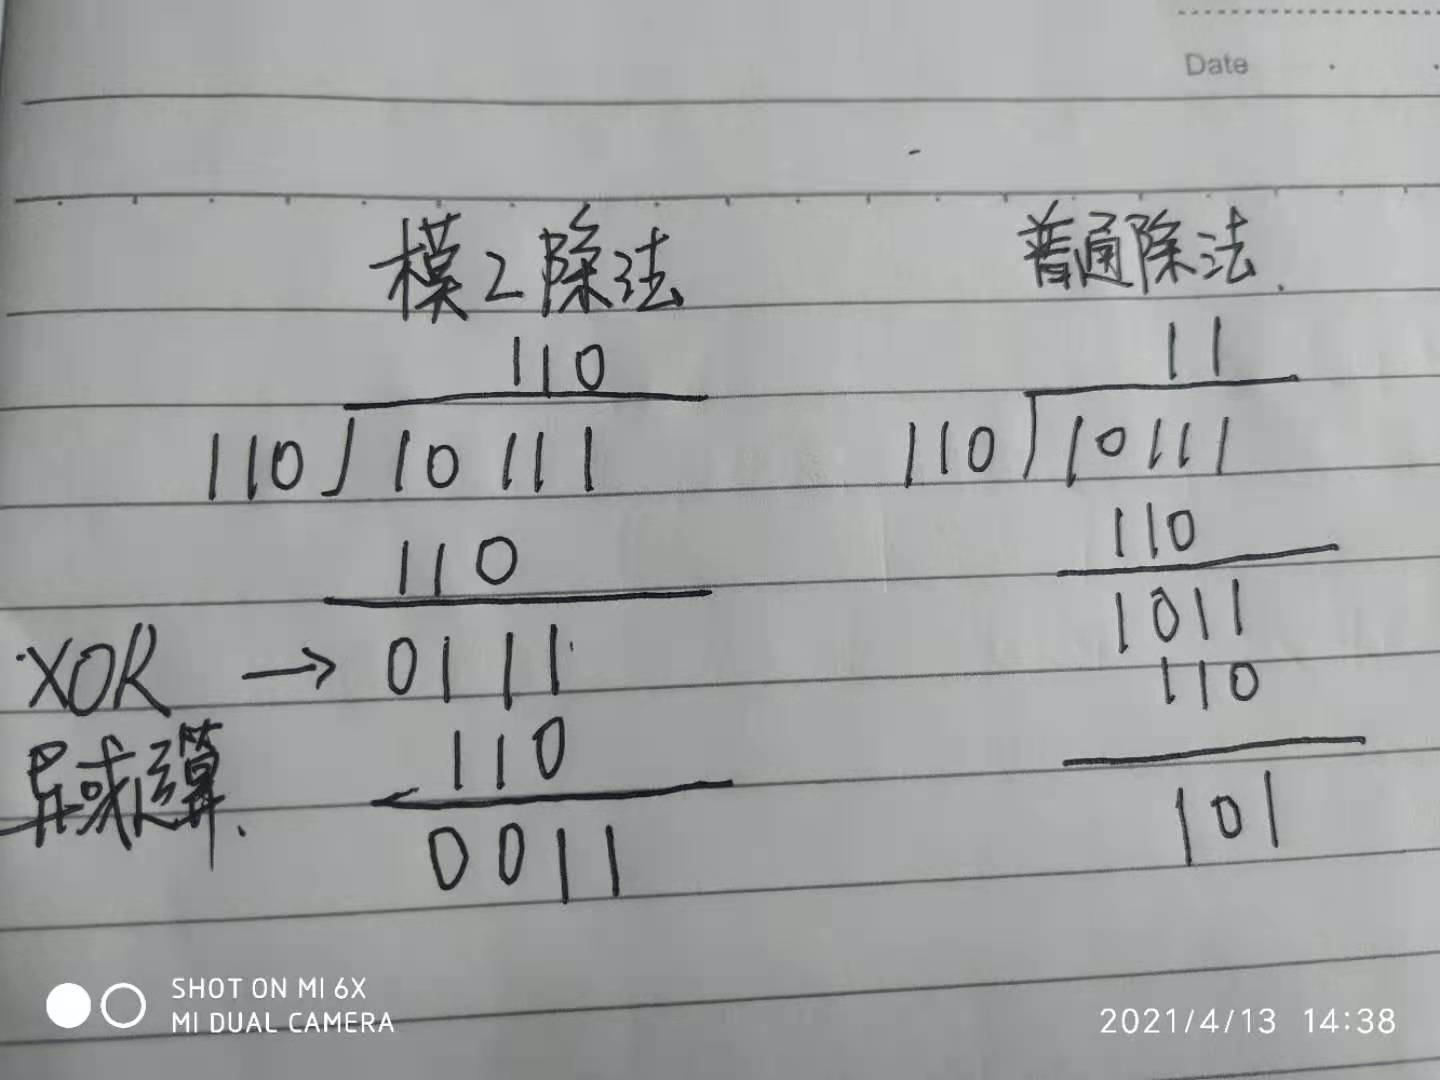 Date
模2除法
110
110 10111
110
XOR → 0111
异或运算.
110
0011
普通除法.
11
110 10111
110
1011
110
101
SHOT ON MI 6X
MI DUAL CAMERA
2021/4/13 14:38